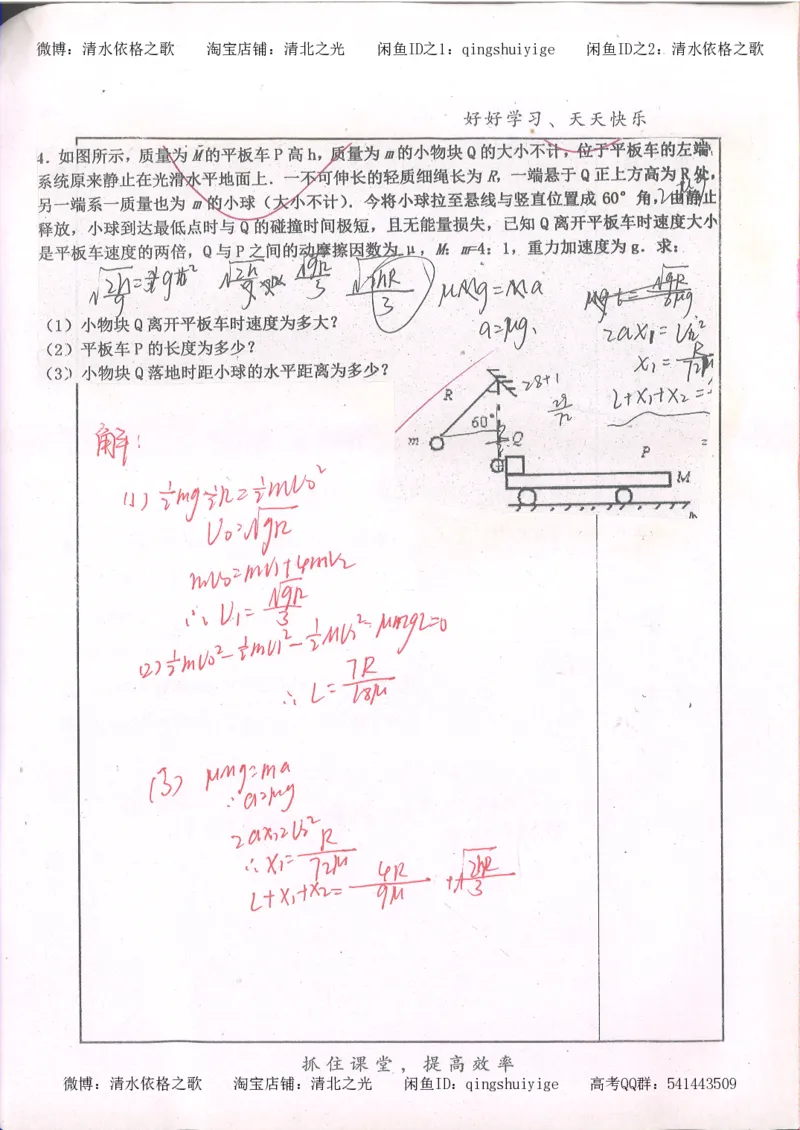 微博：清水依格之歌 淘宝店铺：清北之光 闲鱼ID之1：qingshuiyige 闲鱼ID之2：清水依格之歌
好好学习、天天快乐
4．如图所示，质量为 M的平板车 P 高 h，质量为 m 的小物块 Q 的大小不计，位于平板车的左端，
系统原来静止在光滑水平地面上．一不可伸长的轻质细绳长为 R，一端悬于 Q 正上方高为 R 处，
另一端系一质量也为 m 的小球（大小不计）．今将小球拉至悬线与竖直位置成 60° 角，由静止
释放，小球到达最低点时与 Q 的碰撞时间极短，且无能量损失，已知 Q 离开平板车时速度大小
是平板车速度的两倍，Q 与 P 之间的动摩擦因数为 μ，M：m=4：1，重力加速度为 g．求：
√(2h/g) √(gR)/3 √(2hR)/3 μMg=ma
a=μg. 2ax₁=V₂²
（1）小物块 Q 离开平板车时速度为多大？
（2）平板车 P 的长度为多少？
（3）小物块 Q 落地时距小球的水平距离为多少？
28+1
29/72
L+X₁+X₂=
R
60°
m
Q
P
M
解：
(1) ½mg½R=½mV₀²
V₀=√gR
mV₀=mV₁+4mV₂
∴V₁=√gR/3
(2) ½mV₀²-½mV₁²-½MV₂²-μmgL=0
∴L=7R/18μ
(3) μMg=ma
∴a=μg
2ax₁=V₂²
∴X₁=R/72μ
L+X₁+X₂=4R/9μ+√2hR/3
抓住课堂，提高效率
微博：清水依格之歌 淘宝店铺：清北之光 闲鱼ID：qingshuiyige 高考QQ群：541443509